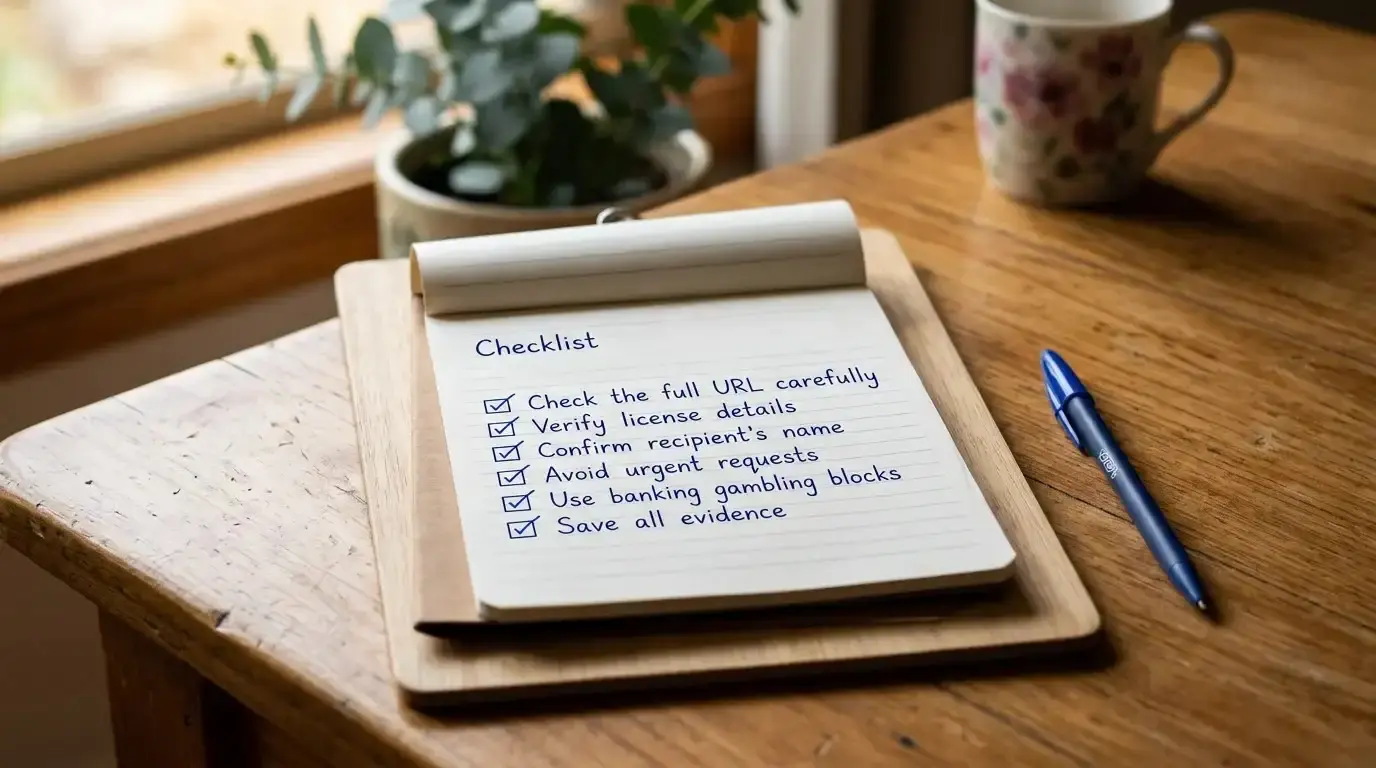 Checklist
☑ Check the full URL carefully
☑ Verify license details
☑ Confirm recipient's name
☑ Avoid urgent requests
☑ Use banking gambling blocks
☑ Save all evidence